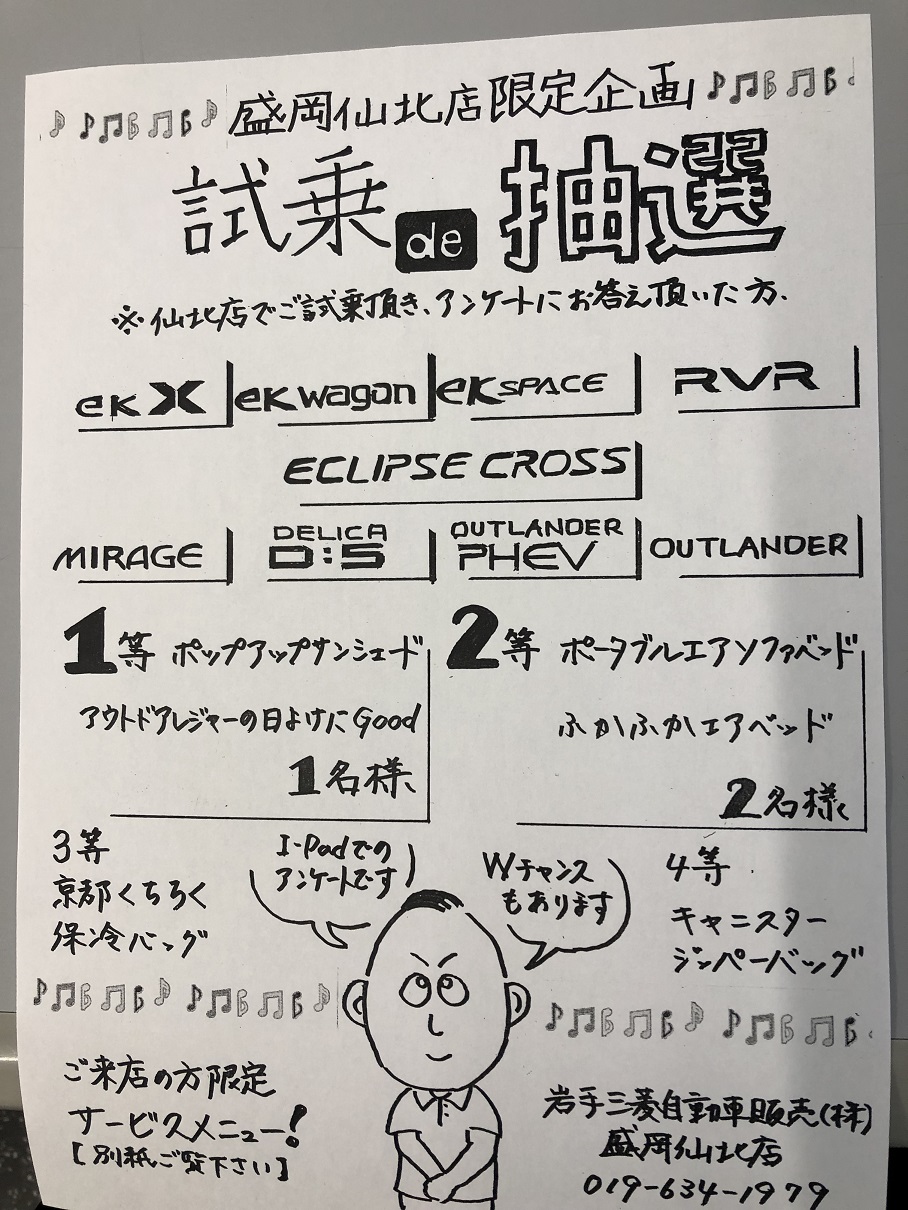 盛岡仙北店限定企画
試乗 de 抽選
※仙北店でご試乗頂き、アンケートにお答え頂いた方、
eK X eK wagon eK SPACE RVR
ECLIPSE CROSS
MIRAGE DELICA D:5 OUTLANDER PHEV OUTLANDER
1等 ポップアップサンシェード
アウトドアレジャーの日よけにGood
1名様
2等 ポータブルエアソファベンド
ふかふかエアベッド
2名様
3等
京都くろちく
保冷バッグ
I-Padでの
アンケートです
Wチャンス
もあります
4等
キャニスター
ジッパーバッグ
ご来店の方限定
サービスメニュー!
[別紙ご覧下さい]
岩手三菱自動車販売(株)
盛岡仙北店
019-634-1979